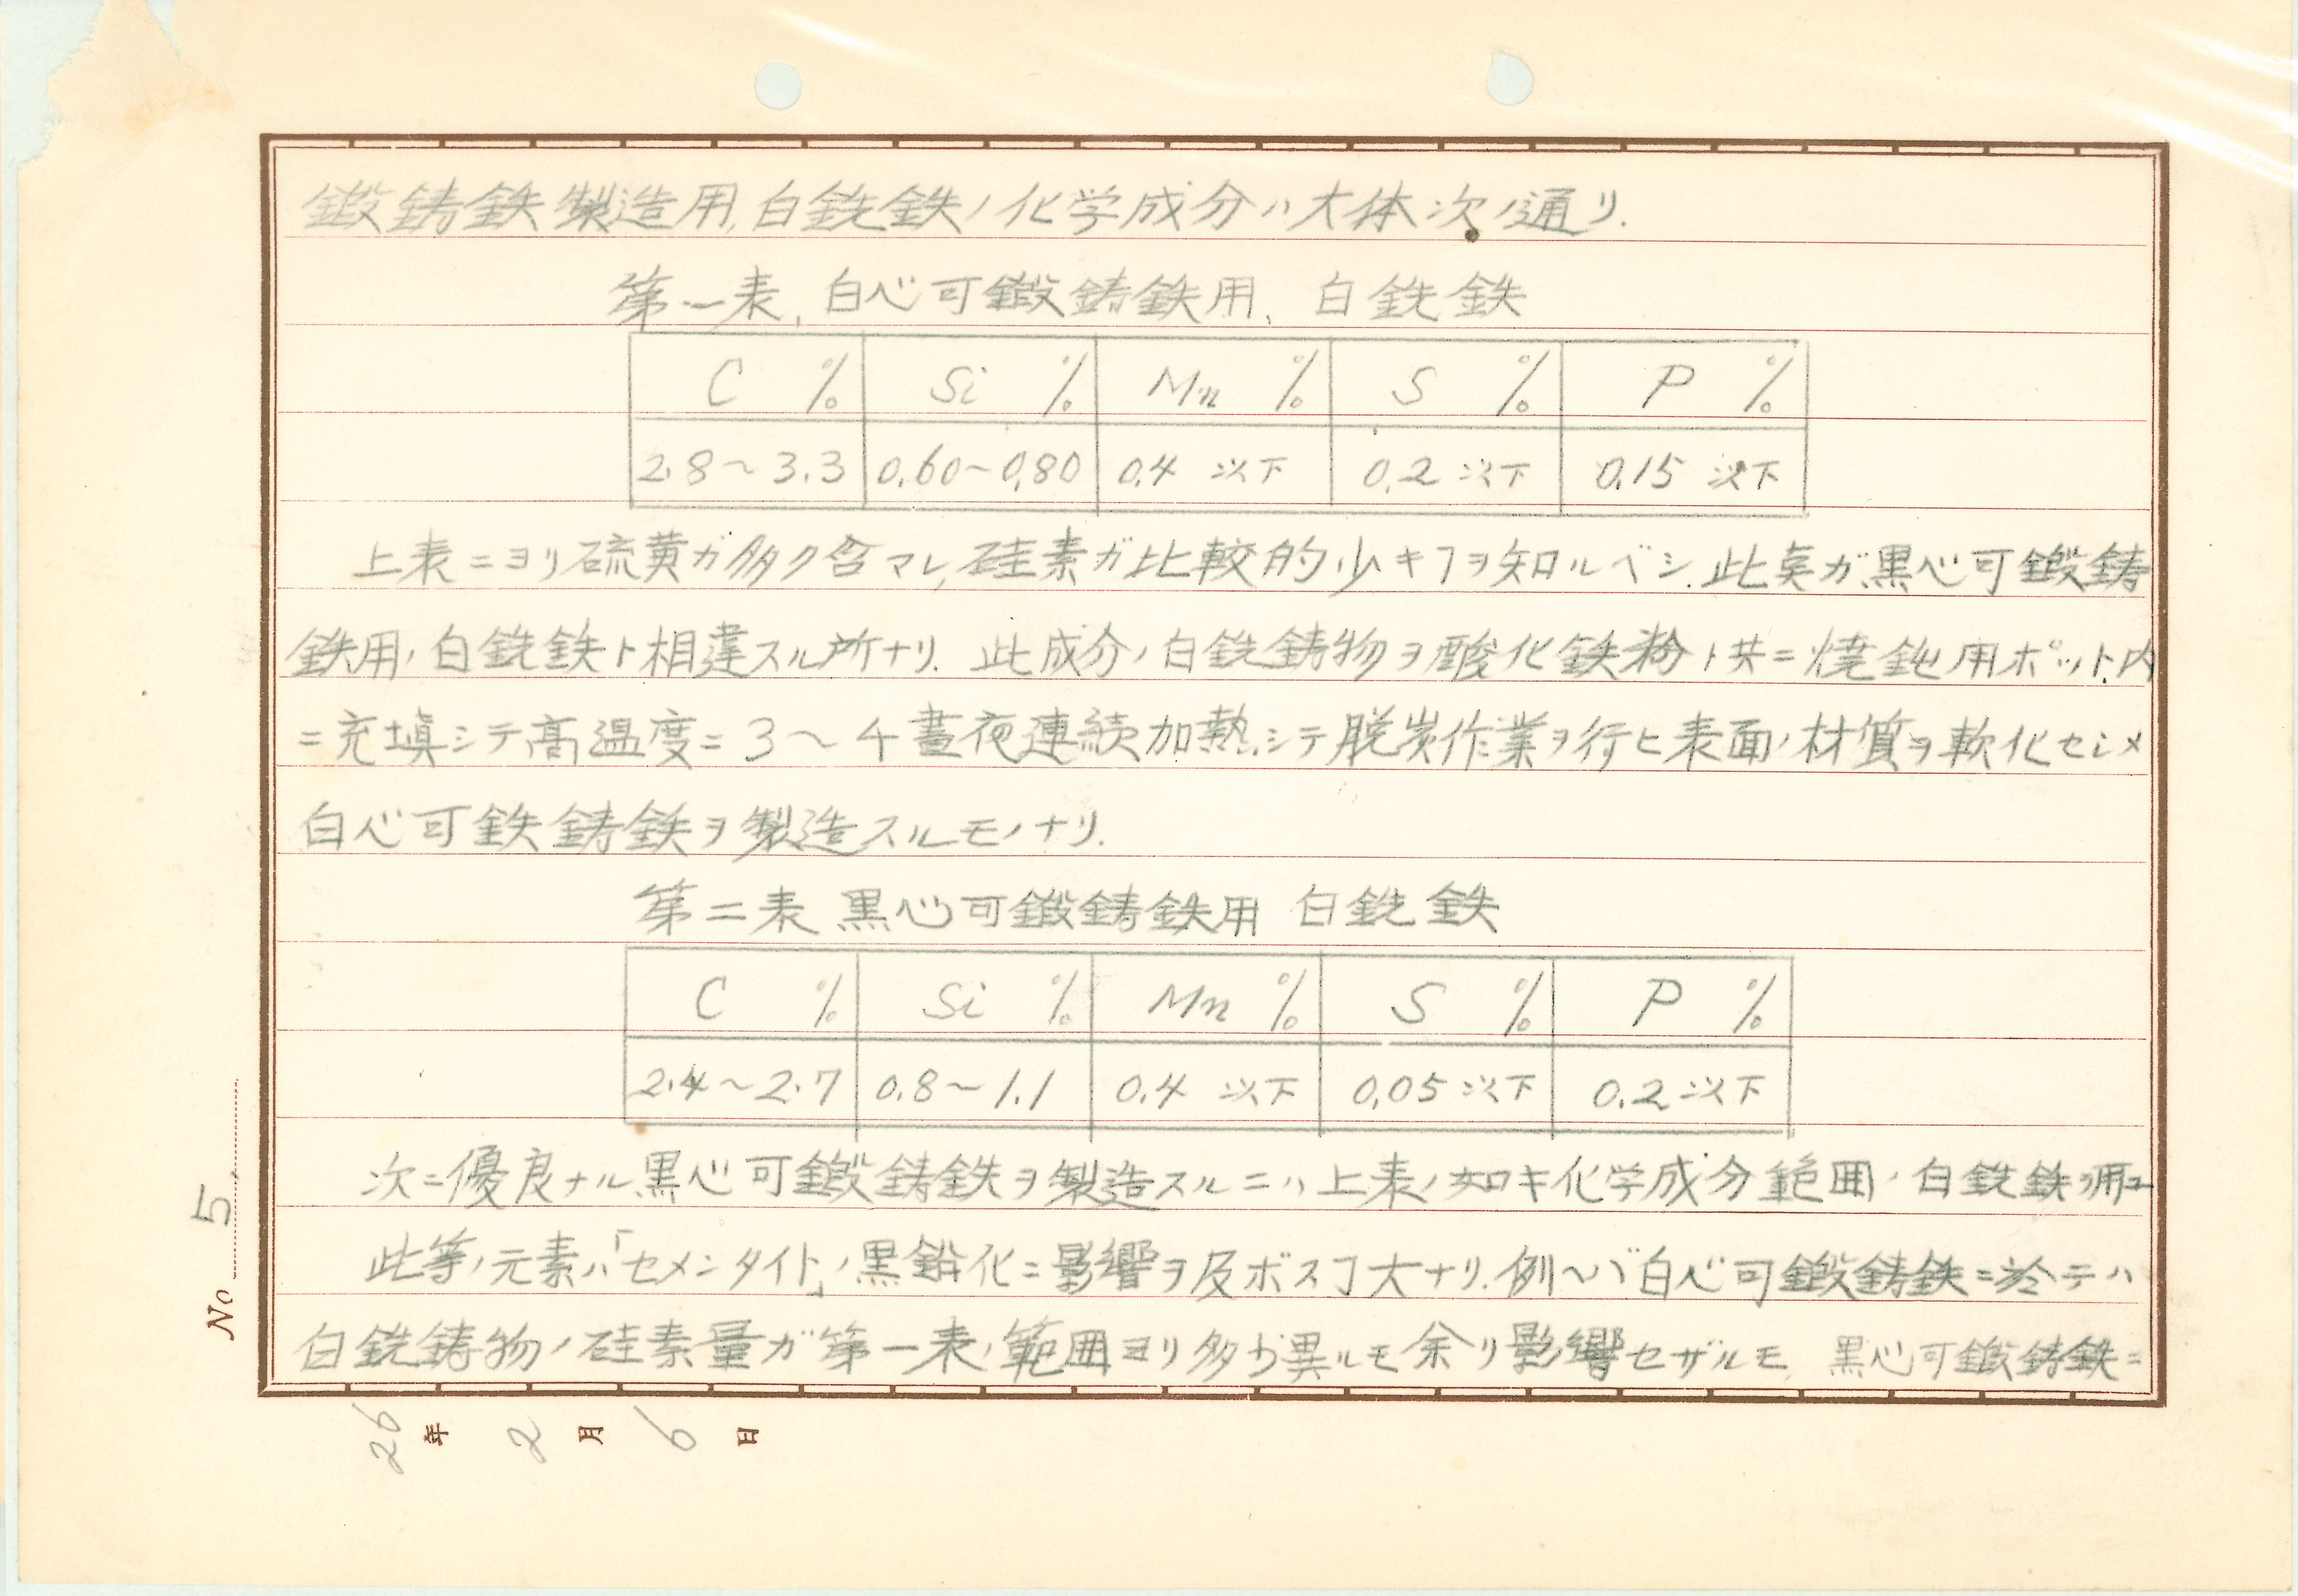 鍛鋳鉄製造用、白銑鉄ノ化学成分ハ大体次ノ通リ.
第一表、白心可鍛鋳鉄用、白銑鉄
C % Si % Mn % S % P %
2.8～3.3 0.60～0.80 0.4 以下 0.2 以下 0.15 以下
上表ニヨリ硫黄ガ多ク含マレ、硅素ガ比較的少キヿヲ知ルベシ.此奌ガ黒心可鍛鋳
鉄用ノ白銑鉄ト相違スル所ナリ. 此成分ノ白銑鋳物ヲ酸化鉄粉ト共ニ焼鈍用ポット内
ニ充塡シテ高温度ニ3～4晝夜連続加熱シテ脱炭作業ヲ行ヒ表面ノ材質ヲ軟化セシメ
白心可鉄鋳鉄ヲ製造スルモノナリ.
第二表 黒心可鍛鋳鉄用 白銑鉄
C % Si % Mn % S % P %
2.4～2.7 0.8～1.1 0.4 以下 0.05 以下 0.2 以下
次ニ優良ナル黒心可鍛鋳鉄ヲ製造スルニハ上表ノ如キ化学成分範囲ノ白銑鉄
此等ノ元素ハ「セメンタイト」ノ黒鉛化ニ影響ヲ及ボスヿ大ナリ.例ヘバ白心可鍛鋳鉄ニ於テハ
白銑鋳物ノ硅素量ガ第一表ノ範囲ヨリ多少異ルモ余リ影響セザルモ、黒心可鍛鋳鉄ニ
No 5.
26年 2月 6日